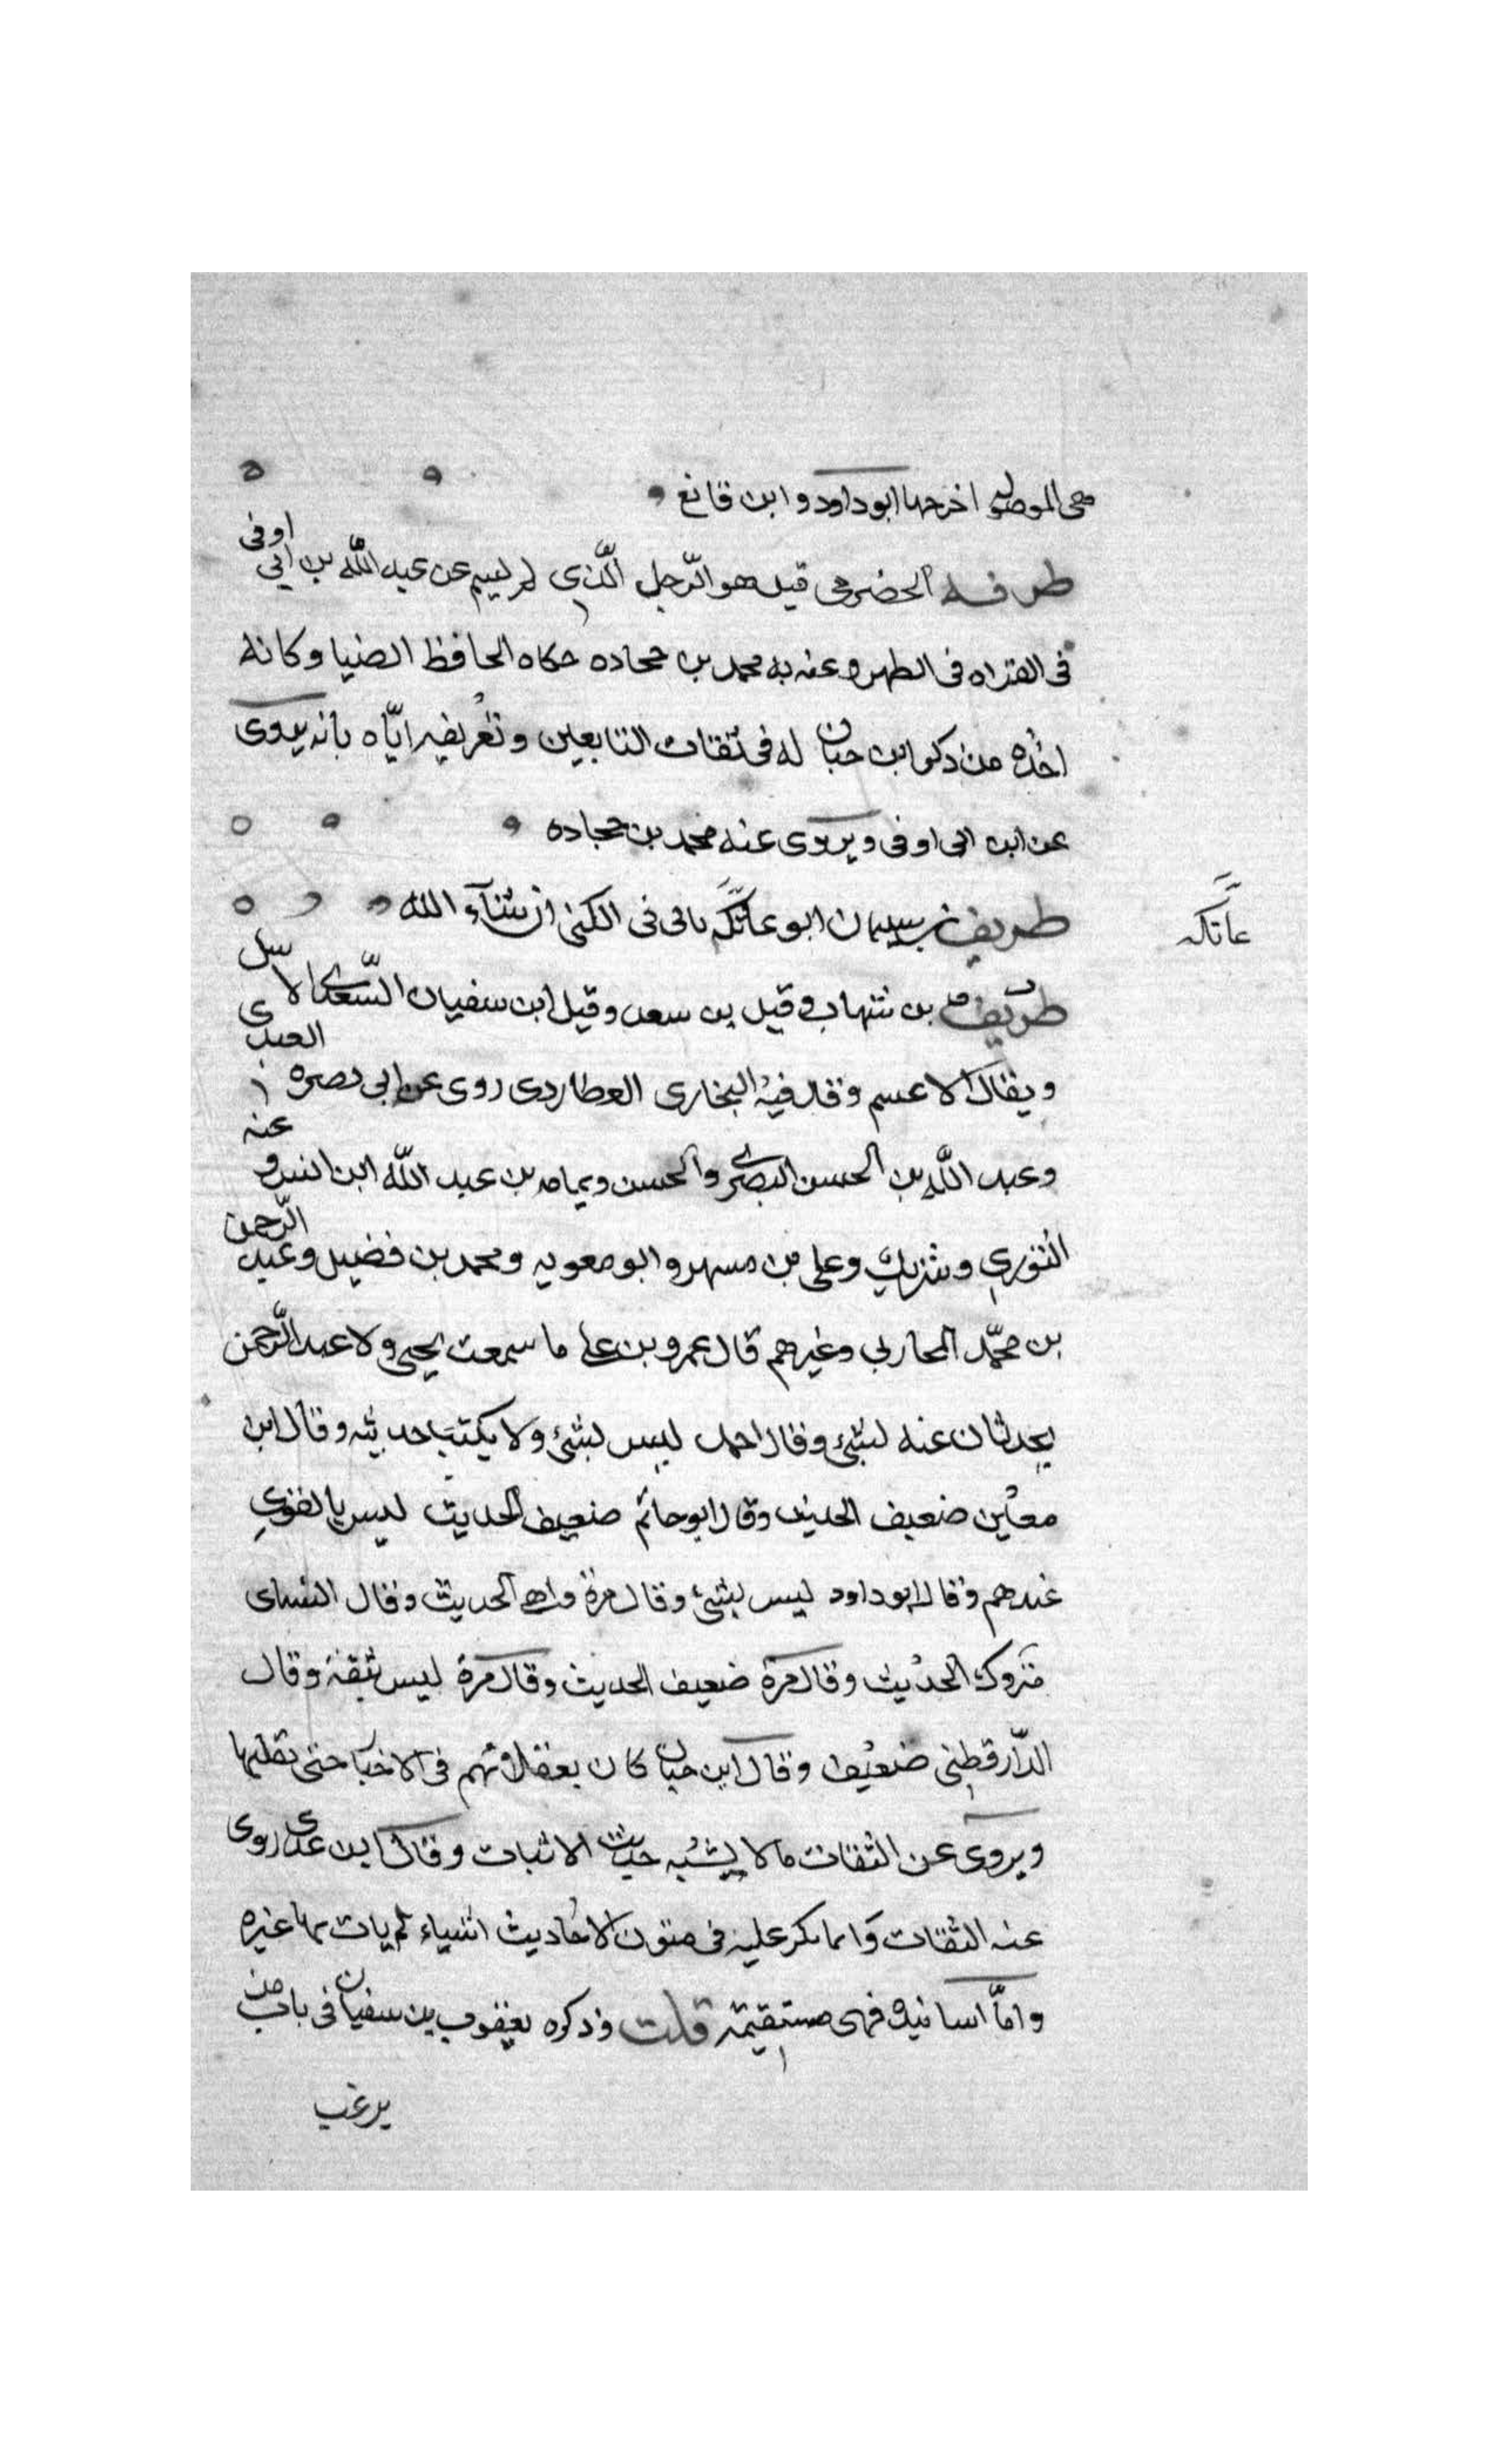 هى الموصوله اخرجها ابوداود وابن قانع
طرفه الحضرمى قيل هو الرّجل الّذى لم يسم عن عبد اللّه بن ابي اوفى
فى القراه فى الظهر وعنه به محمد بن جحاده حكاه الحافظ الضيا وكانه
اخذه من ذكر ابن حبان له فى ثقات التابعين وتعريفه ايّاه بانه يروى
عن ابن ابى اوفى ويروى عنه محمد بن جحاده
طريف بن سليمان ابو عاتكه ياتى فى الكنى ان شآء الله
عاتكه
طريف بن شهاب وقيل بن سعد وقيل ابن سفيان السّعدى الاشل
ويقال الاعسم وقال فيه البخارى العطاردى روى عن ابى نصره العبدى
وعبد اللّه بن الحسن البصرى والحسن وثمامه بن عبد اللّه ابن انس وعنه
الثورى وشريك وعلى بن مسهر وابو معويه ومحمد بن فضيل وعبد الرّحمن
بن محمّد المحاربى وغيرهم قال عمرو بن على ما سمعت يحيى ولا عبد الرّحمن
يحدثان عنه بشئ وقال احمد ليس بشئ ولا يكتب حديثه وقال ابن
معين ضعيف الحديث وقال ابو حاتم ضعيف الحديث ليس بالقوى
عندهم وقال ابو داود ليس بشئ وقال مرة واهى الحديث وقال النسائى
متروك الحديث وقال مرة ضعيف الحديث وقال مرة ليس بثقة وقال
الدّارقطنى ضعيف وقال ابن حبان كان يهم فى الاخبار حتى يقلبها
ويروى عن الثقات مالا يشبه حديث الاثبات وقال ابن عدى روى
عنه الثقات وانما انكر عليه فى متون الاحاديث اشياء لم يات بها غيره
وامّا اسانيده فهى مستقيمة قلت وذكره يعقوب بن سفيان فى باب من
يرغب